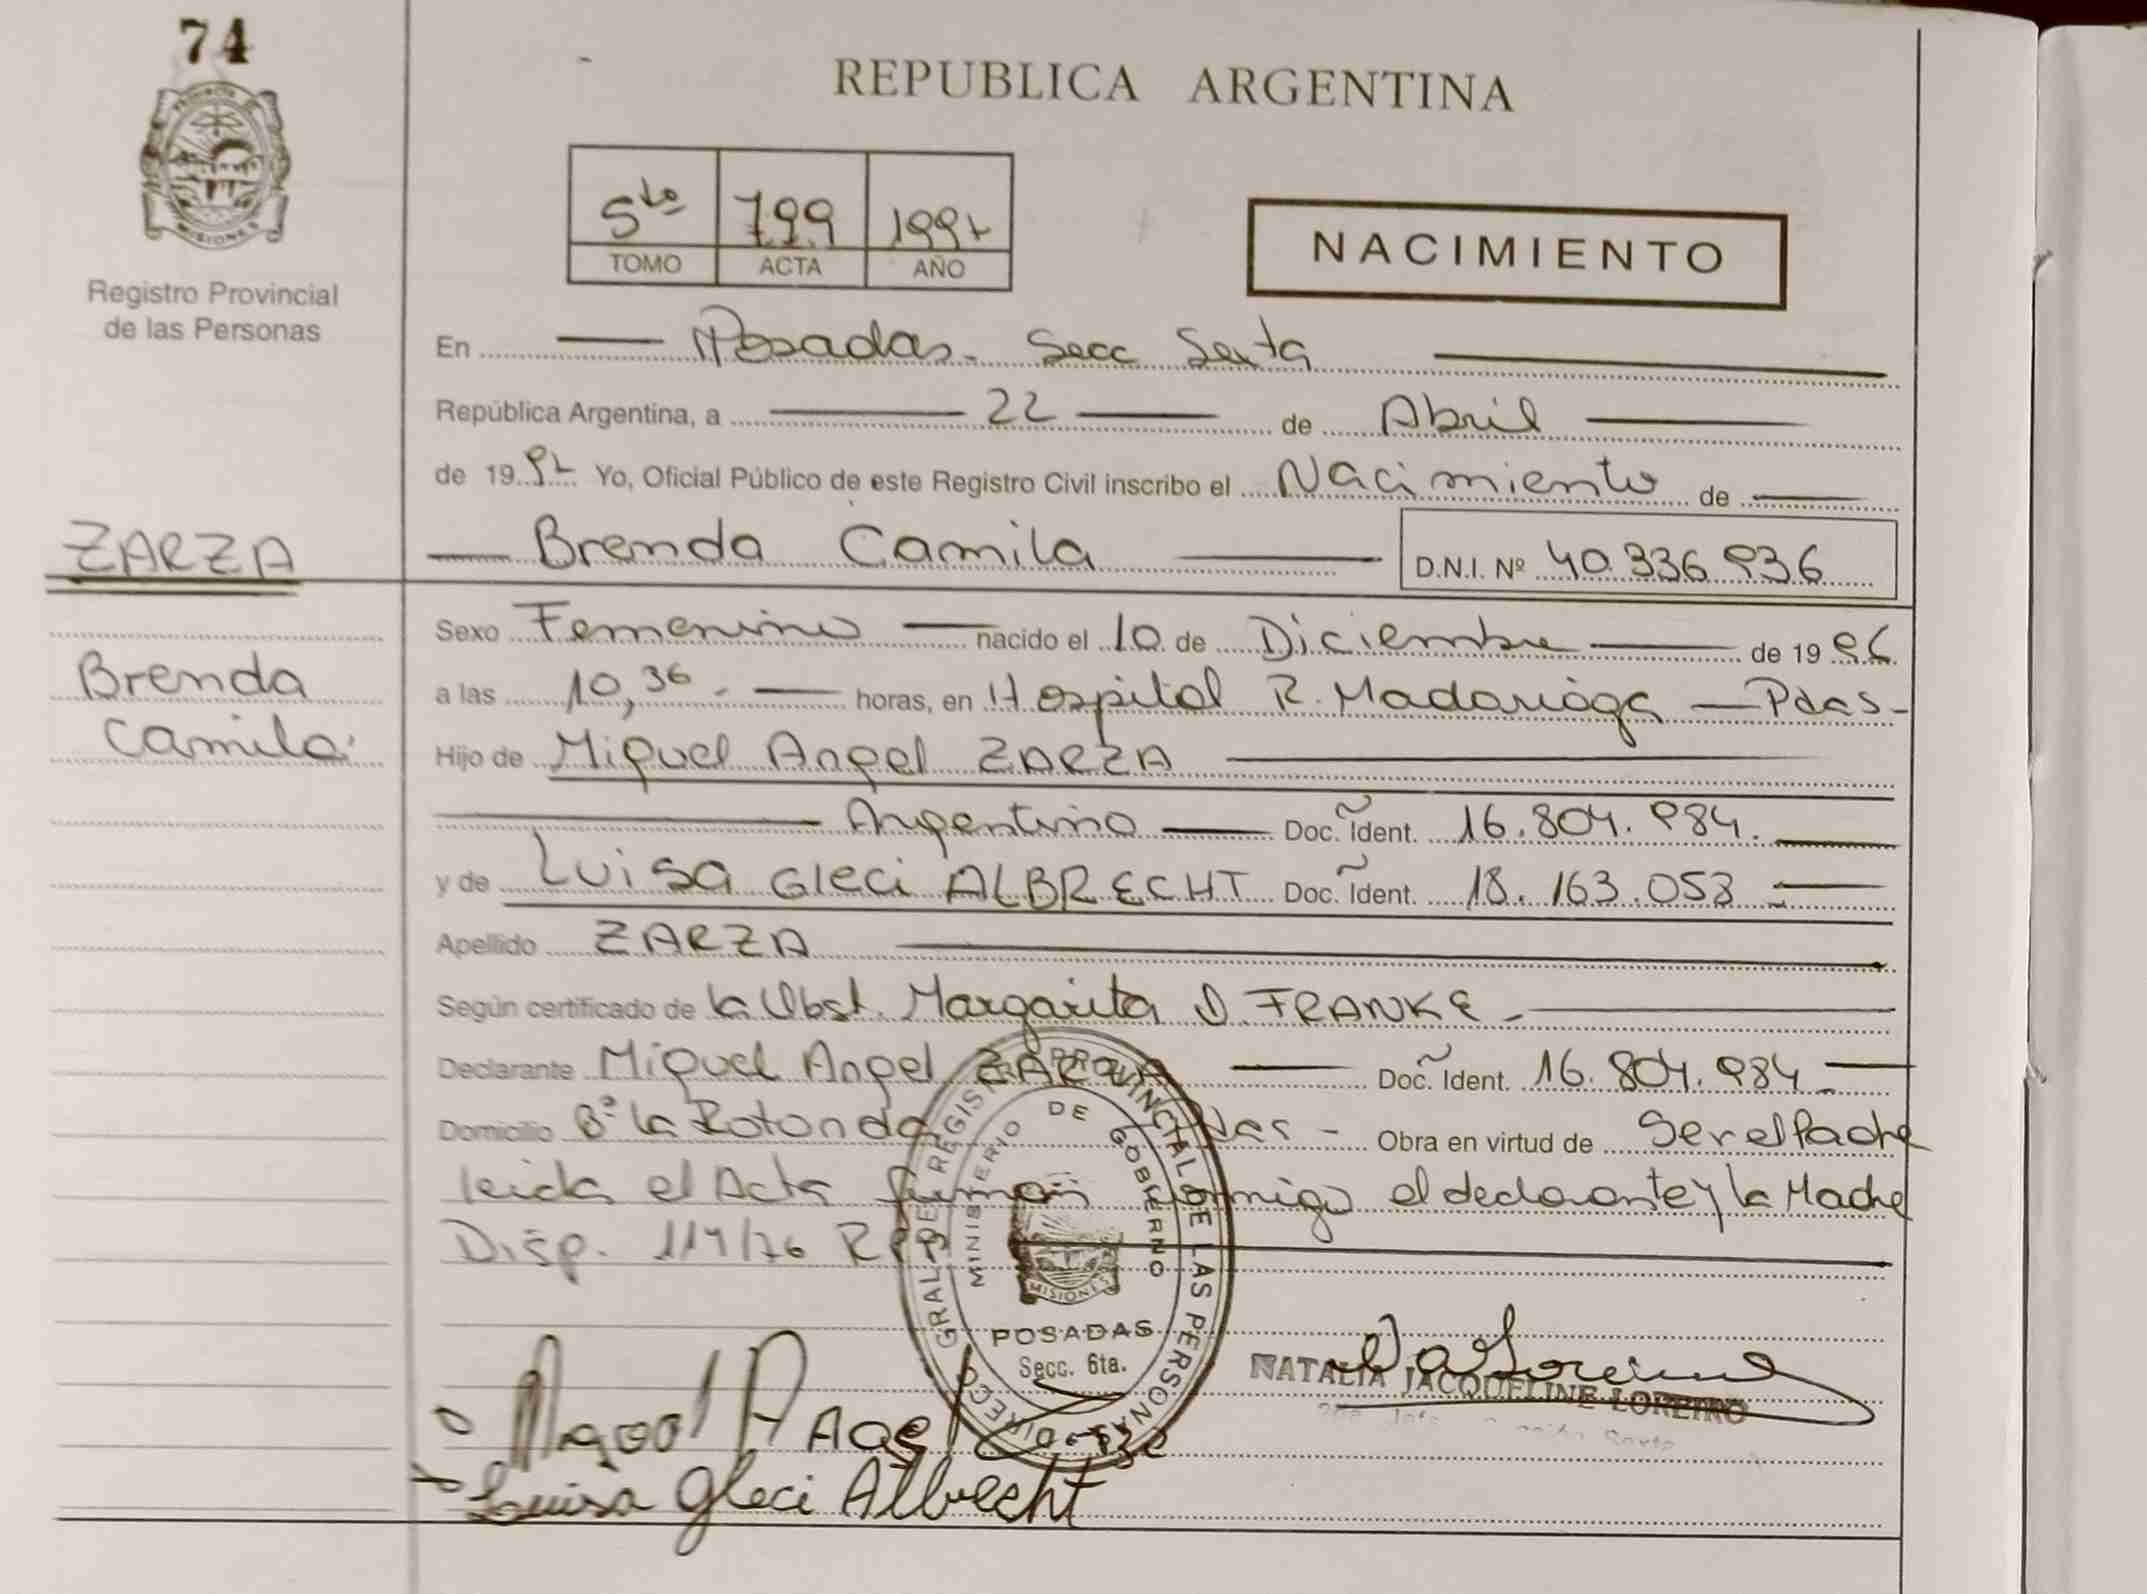 74
PROVINCIA DE
MISIONES
Registro Provincial
de las Personas
ZARZA
Brenda
Camila
REPUBLICA ARGENTINA
5to 799 1997
TOMO ACTA AÑO
NACIMIENTO
En Posadas. Secc Sexta
República Argentina, a 22 de Abril
de 1997 Yo, Oficial Público de este Registro Civil inscribo el Nacimiento de
Brenda Camila D.N.I. Nº 40.336.936
Sexo Femenino nacido el 10 de Diciembre de 1996
a las 10,36 horas, en Hospital R. Madariaga - Pdas-
Hijo de Miguel Angel ZARZA
Argentino Doc. Ident. 16.804.984.
y de Luisa Gleci ALBRECHT Doc. Ident. 18.163.053
Apellido ZARZA
Según certificado de la Obst. Margarita D. FRANKE -
Declarante Miguel Angel ZARZA Doc. Ident. 16.804.984
Domicilio Bº la Rotonda Pdas - Obra en virtud de Ser el Padre
leida el Acta firman conmigo el declarante y la Madre
Disp. 114/76 RPP
DIRECC GRAL DE REGIST PROVINCIAL DE LAS PERSONAS
MINISTERIO DE GOBIERNO
MISIONES
POSADAS
Secc. 6ta.
NATALIA JACQUELINE LOREIRO
Luisa Gleci Albrecht